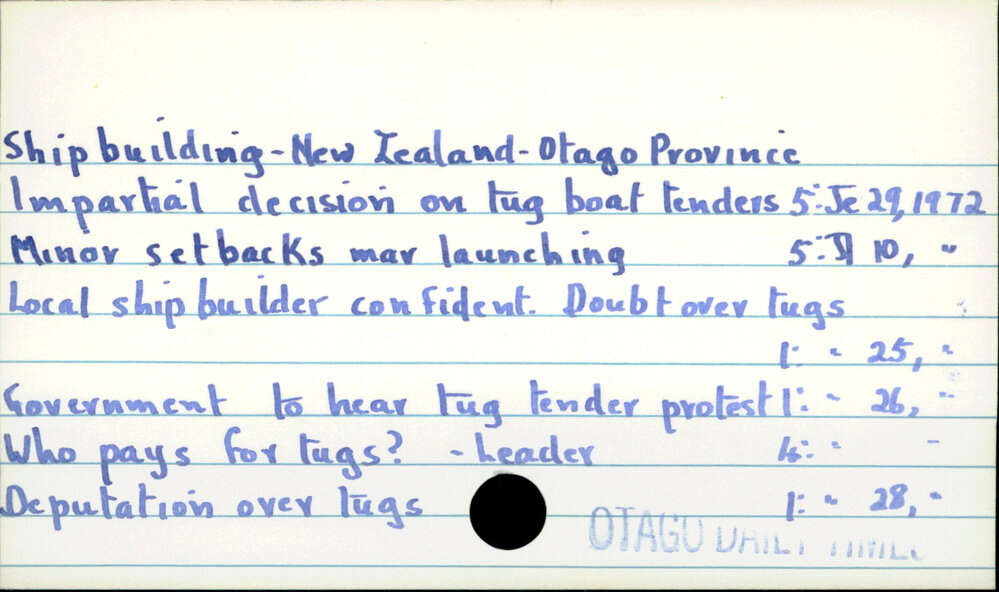 Shipbuilding - New Zealand - Otago Province
Impartial decision on tug boat tenders 5: Je 29, 1972
Minor setbacks mar launching 5: Jl 10, "
Local shipbuilder confident. Doubt over tugs
1: " 25, "
Government to hear tug tender protest 1: " 26, "
Who pays for tugs? - Leader 4: " "
Deputation over tugs 1: " 28, "
OTAGO DAILY TIMES